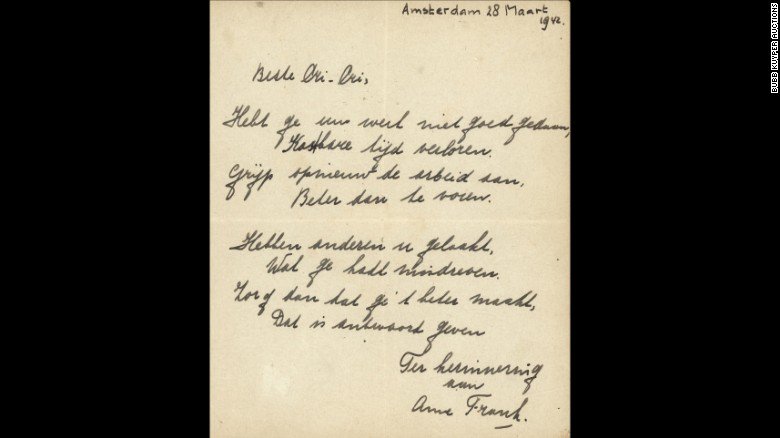 Amsterdam 28 Maart
1942.
Beste Cri-Cri,
Hebt ge uw werk niet goed gedaan,
Kostbare tijd verloren.
Grijp opnieuw de arbeid aan,
Beter dan te voren.
Hebben anderen u gelaakt,
Wat ge hadt misdreven.
Zorg dan dat ge 't beter maakt,
Dat is antwoord geven
Ter herinnering
aan
Anne Frank.
BUBB KUYPER AUCTIONS